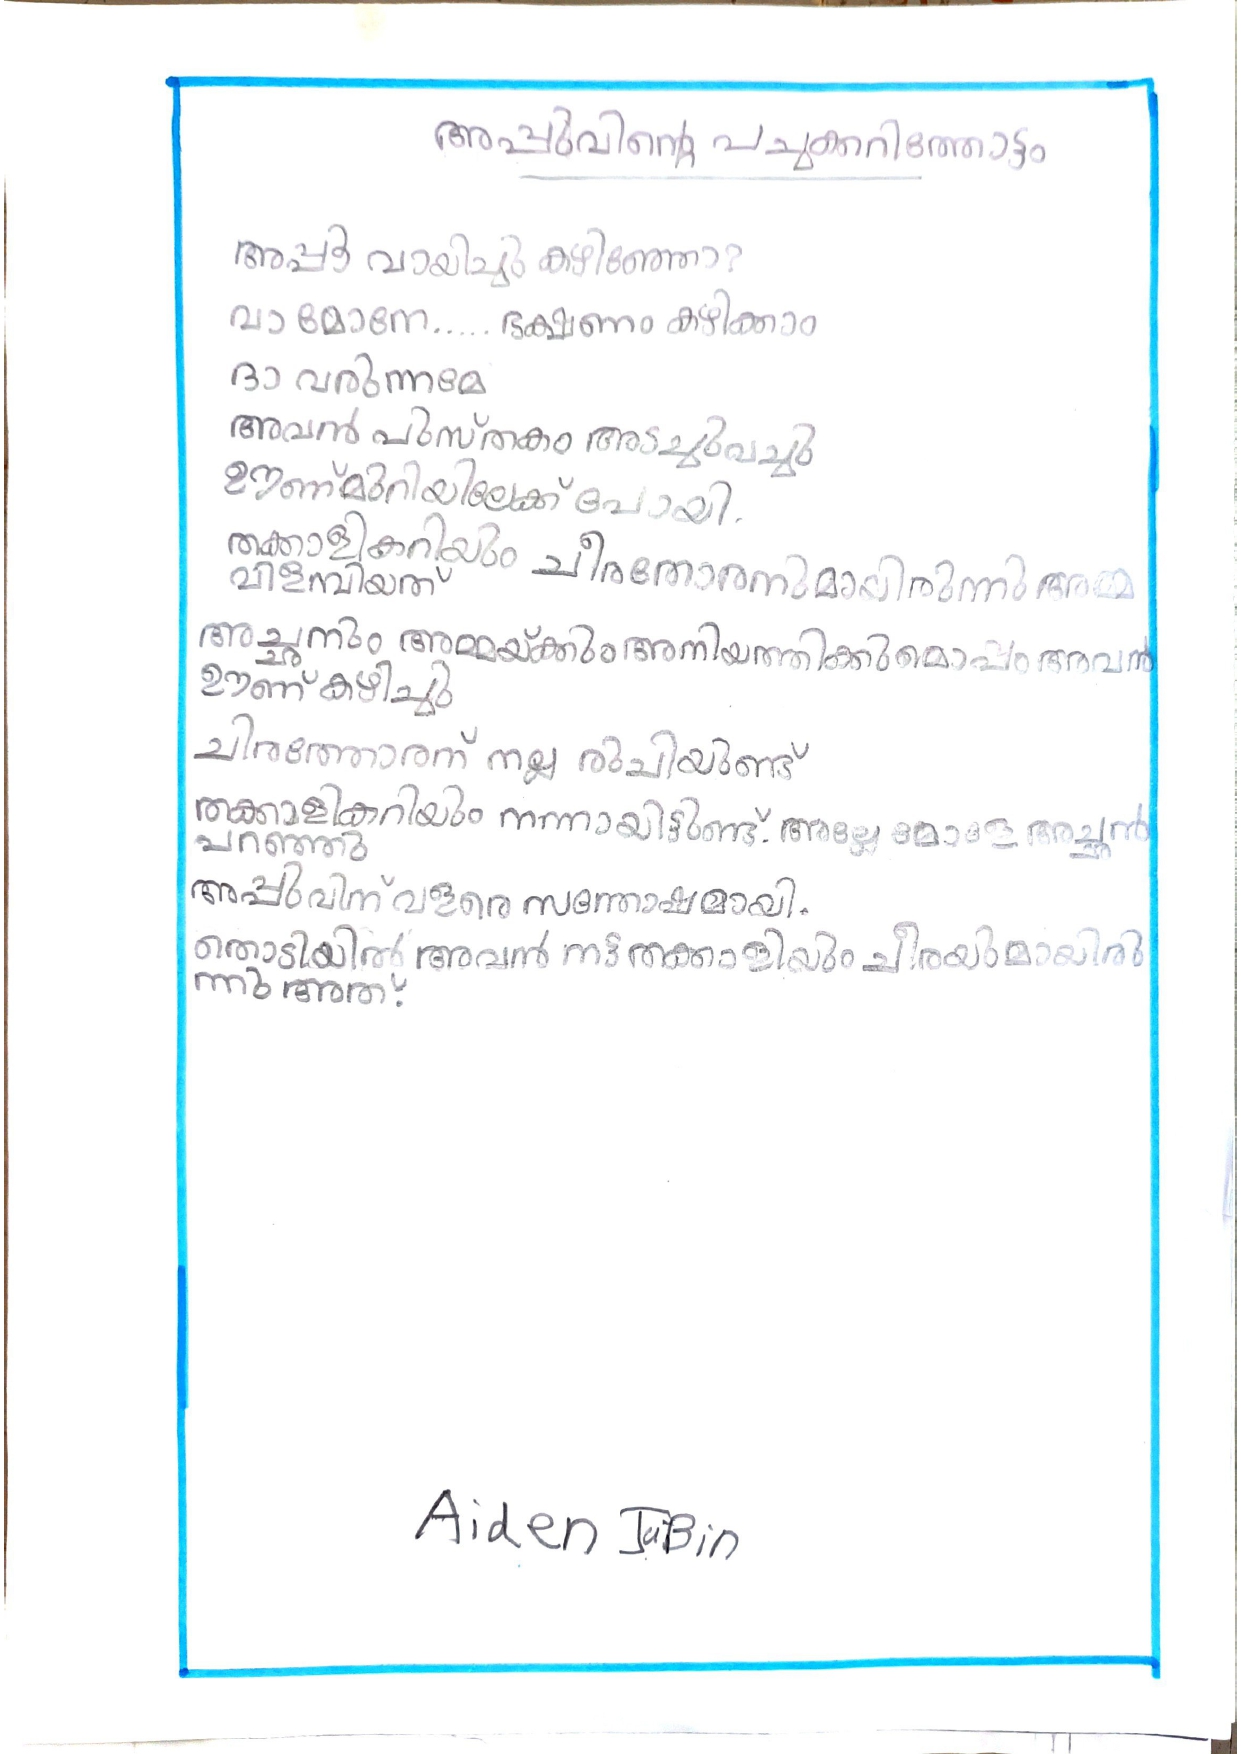 അപ്പുവിന്റെ പച്ചക്കറിത്തോട്ടം
അപ്പൂ വായിച്ചു കഴിഞ്ഞോ?
വാ മോനേ..... ഭക്ഷണം കഴിക്കാം
ദാ വരുന്നമ്മേ
അവൻ പുസ്തകം അടച്ചുവച്ചു
ഊണ്മുറിയിലേക്ക് പോയി.
തക്കാളികറിയും ചീരതോരനുമായിരുന്നു അമ്മ
വിളമ്പിയത്
അച്ഛനും അമ്മയ്ക്കും അനിയത്തിക്കുമൊപ്പം അവൻ
ഊണ് കഴിച്ചു
ചിരത്തോരന് നല്ല രുചിയുണ്ട്
തക്കാളികറിയും നന്നായിട്ടുണ്ട്. അല്ലേ മോളേ അച്ഛൻ
പറഞ്ഞു
അപ്പുവിന് വളരെ സന്തോഷമായി.
തൊടിയിൽ അവൻ നട്ട തക്കാളിയും ചീരയുമായിരു
ന്നു അത്.
Aiden JuBin